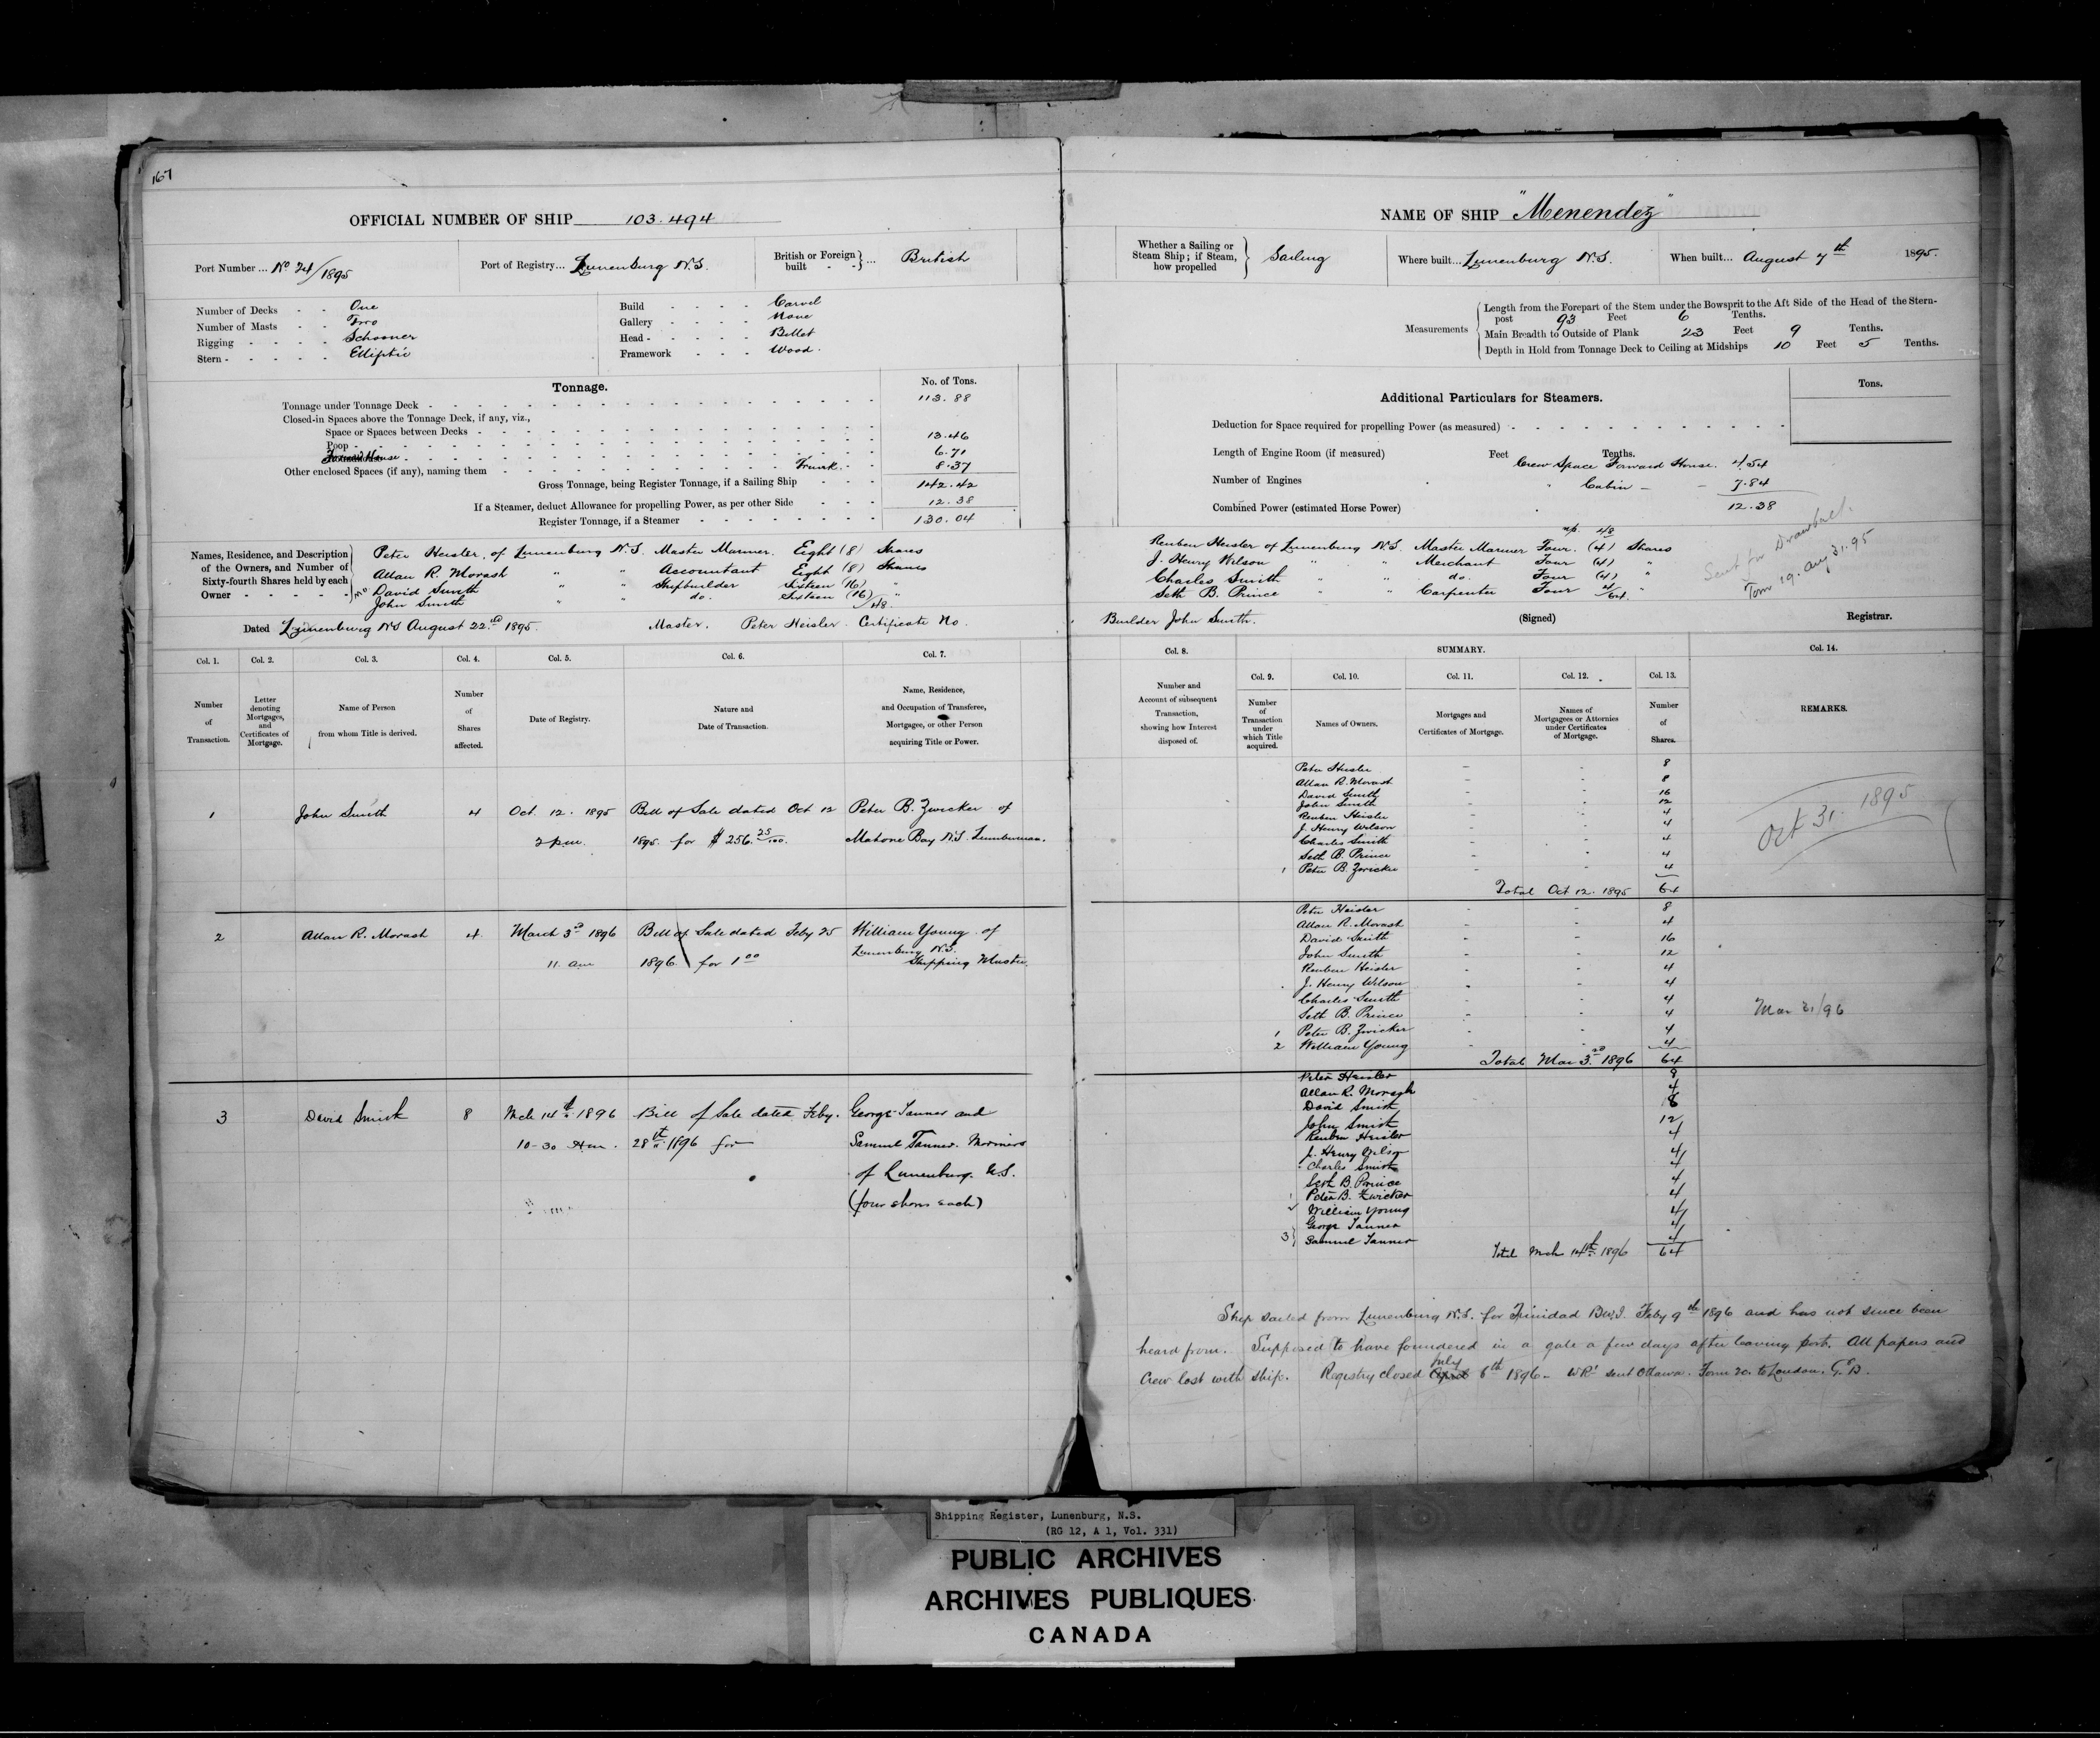 167
OFFICIAL NUMBER OF SHIP 103.494
Port Number ... No 24/1895
Port of Registry... Lunenburg N.S.
British or Foreign built - - } ... British
Number of Decks - - One
Number of Masts - - Two
Rigging - - - - Schooner
Stern - - - - - Elliptic
Build - - - - Carvel
Gallery - - - - None
Head - - - - - Billet
Framework - - - Wood.
Tonnage.
No. of Tons.
Tonnage under Tonnage Deck - 113.88
Closed-in Spaces above the Tonnage Deck, if any, viz.,
Space or Spaces between Decks - 13.46
Poop -
Forward House - 6.71
Other enclosed Spaces (if any), naming them - Trunk - 8.37
Gross Tonnage, being Register Tonnage, if a Sailing Ship - - - 142.42
If a Steamer, deduct Allowance for propelling Power, as per other Side - - - 12.38
Register Tonnage, if a Steamer - 130.04
Names, Residence, and Description of the Owners, and Number of Sixty-fourth Shares held by each Owner - - - - -
Peter Heisler, of Lunenburg N.S. Master Mariner. Eight (8) Shares
Allan R. Morash " " Accountant Eight (8) Shares
David Smith " " Shipbuilder Sixteen (16) "
John Smith " " do. Sixteen (16) "
/48.
Dated Lunenburg NS August 22nd 1895. Master. Peter Heisler. Certificate No.
Col. 1. Col. 2. Col. 3. Col. 4. Col. 5. Col. 6. Col. 7.
Number of Transaction.
Letter denoting Mortgages, and Certificates of Mortgage.
Name of Person from whom Title is derived.
Number of Shares affected.
Date of Registry.
Nature and Date of Transaction.
Name, Residence, and Occupation of Transferee, Mortgagee, or other Person acquiring Title or Power.
1 John Smith 4 Oct. 12. 1895 Bill of Sale dated Oct 12 Peter B. Zwicker of
2 p.m. 1895. for $256.25/100. Mahone Bay N.S. Lumberman.
2 Allan R. Morash 4. March 3rd 1896 Bill of Sale dated Feby 25 William Young. of
Lunenburg N.S.
11. am 1896. for 1 00 Shipping Master.
3 David Smith 8 Mch 14th 1896 Bill of Sale dated Feby. George Tanner and
10-30 Am. 28th 1896 for Samuel Tanner. Mariners
of Lunenburg. N.S.
(four shares each)
NAME OF SHIP "Menendez"
Whether a Sailing or Steam Ship; if Steam, how propelled } Sailing
Where built... Lunenburg N.S.
When built... August 7th 1895.
Measurements
Length from the Forepart of the Stem under the Bowsprit to the Aft Side of the Head of the Stern-
post 93 Feet 6 Tenths.
Main Breadth to Outside of Plank 23 Feet 9 Tenths.
Depth in Hold from Tonnage Deck to Ceiling at Midships 10 Feet 5 Tenths.
Additional Particulars for Steamers.
Tons.
Deduction for Space required for propelling Power (as measured) -
Length of Engine Room (if measured) Feet Tenths.
Crew Space Forward House. 4.54
Number of Engines
" Cabin - - 7.84
Combined Power (estimated Horse Power) 12.38
48
Reuben Heisler of Lunenburg N.S. Master Mariner Four. (4) Shares
J. Henry Wilson " " Merchant Four (4) "
Charles Smith " " do. Four (4) "
Seth B. Prince " " Carpenter Four 4/64. "
Sent for Drawback.
Form 19. Aug 31. 95
Builder John Smith. (Signed) Registrar.
Col. 8. SUMMARY. Col. 14.
Col. 9. Col. 10. Col. 11. Col. 12. Col. 13.
Number and Account of subsequent Transaction, showing how Interest disposed of.
Number of Transaction under which Title acquired.
Names of Owners.
Mortgages and Certificates of Mortgage.
Names of Mortgagees or Attornies under Certificates of Mortgage.
Number of Shares.
REMARKS.
Peter Heisler - - 8
Allan R. Morash - - 8
David Smith 16
John Smith - - 12
Reuben Heisler - - 4
J. Henry Wilson - - 4
Charles Smith - - 4
Seth B. Prince - - 4
1 Peter B. Zwicker - - 4
Total Oct 12. 1895 64
Oct 31. 1895
Peter Heisler - - 8
Allan R. Morash - - 4
David Smith - - 16
John Smith - - 12
Reuben Heisler - - 4
J. Henry Wilson - - 4
Charles Smith - - 4
Seth B. Prince - - 4
1 Peter B. Zwicker - - 4
2 William Young - - 4
Total Mar 3rd 1896 64
Mar 31/96
Peter Heisler 8
Allan R. Morash 4
David Smith 8
John Smith 12
Reuben Heisler 4
J. Henry Wilson 4
Charles Smith 4
Seth B. Prince 4
1 Peter B. Zwicker 4
2 William Young 4
George Tanner 4
3} Samuel Tanner 4
Total Mch 14th 1896 64
Ship sailed from Lunenburg N.S. for Trinidad B.W.I. Feby 9th 1896 and has not since been
heard from. Supposed to have foundered in a gale a few days after leaving port. All papers and
July
Crew lost with ship. Registry closed April 6th 1896 - WR1 sent Ottawa. Form 20. to London.
Shipping Register, Lunenburg, N.S.
(RG 12, A 1, Vol. 331)
PUBLIC ARCHIVES
ARCHIVES PUBLIQUES
CANADA